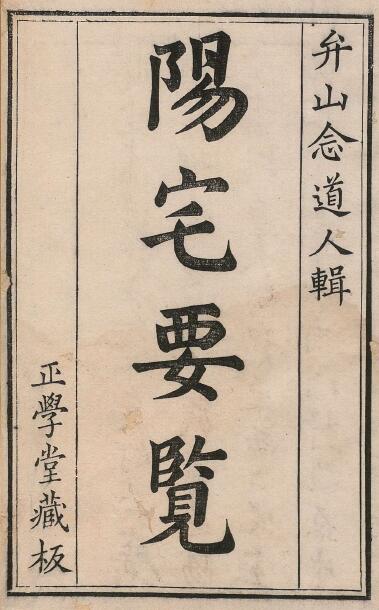 弁山念道人輯
陽宅要覧
正學堂藏板